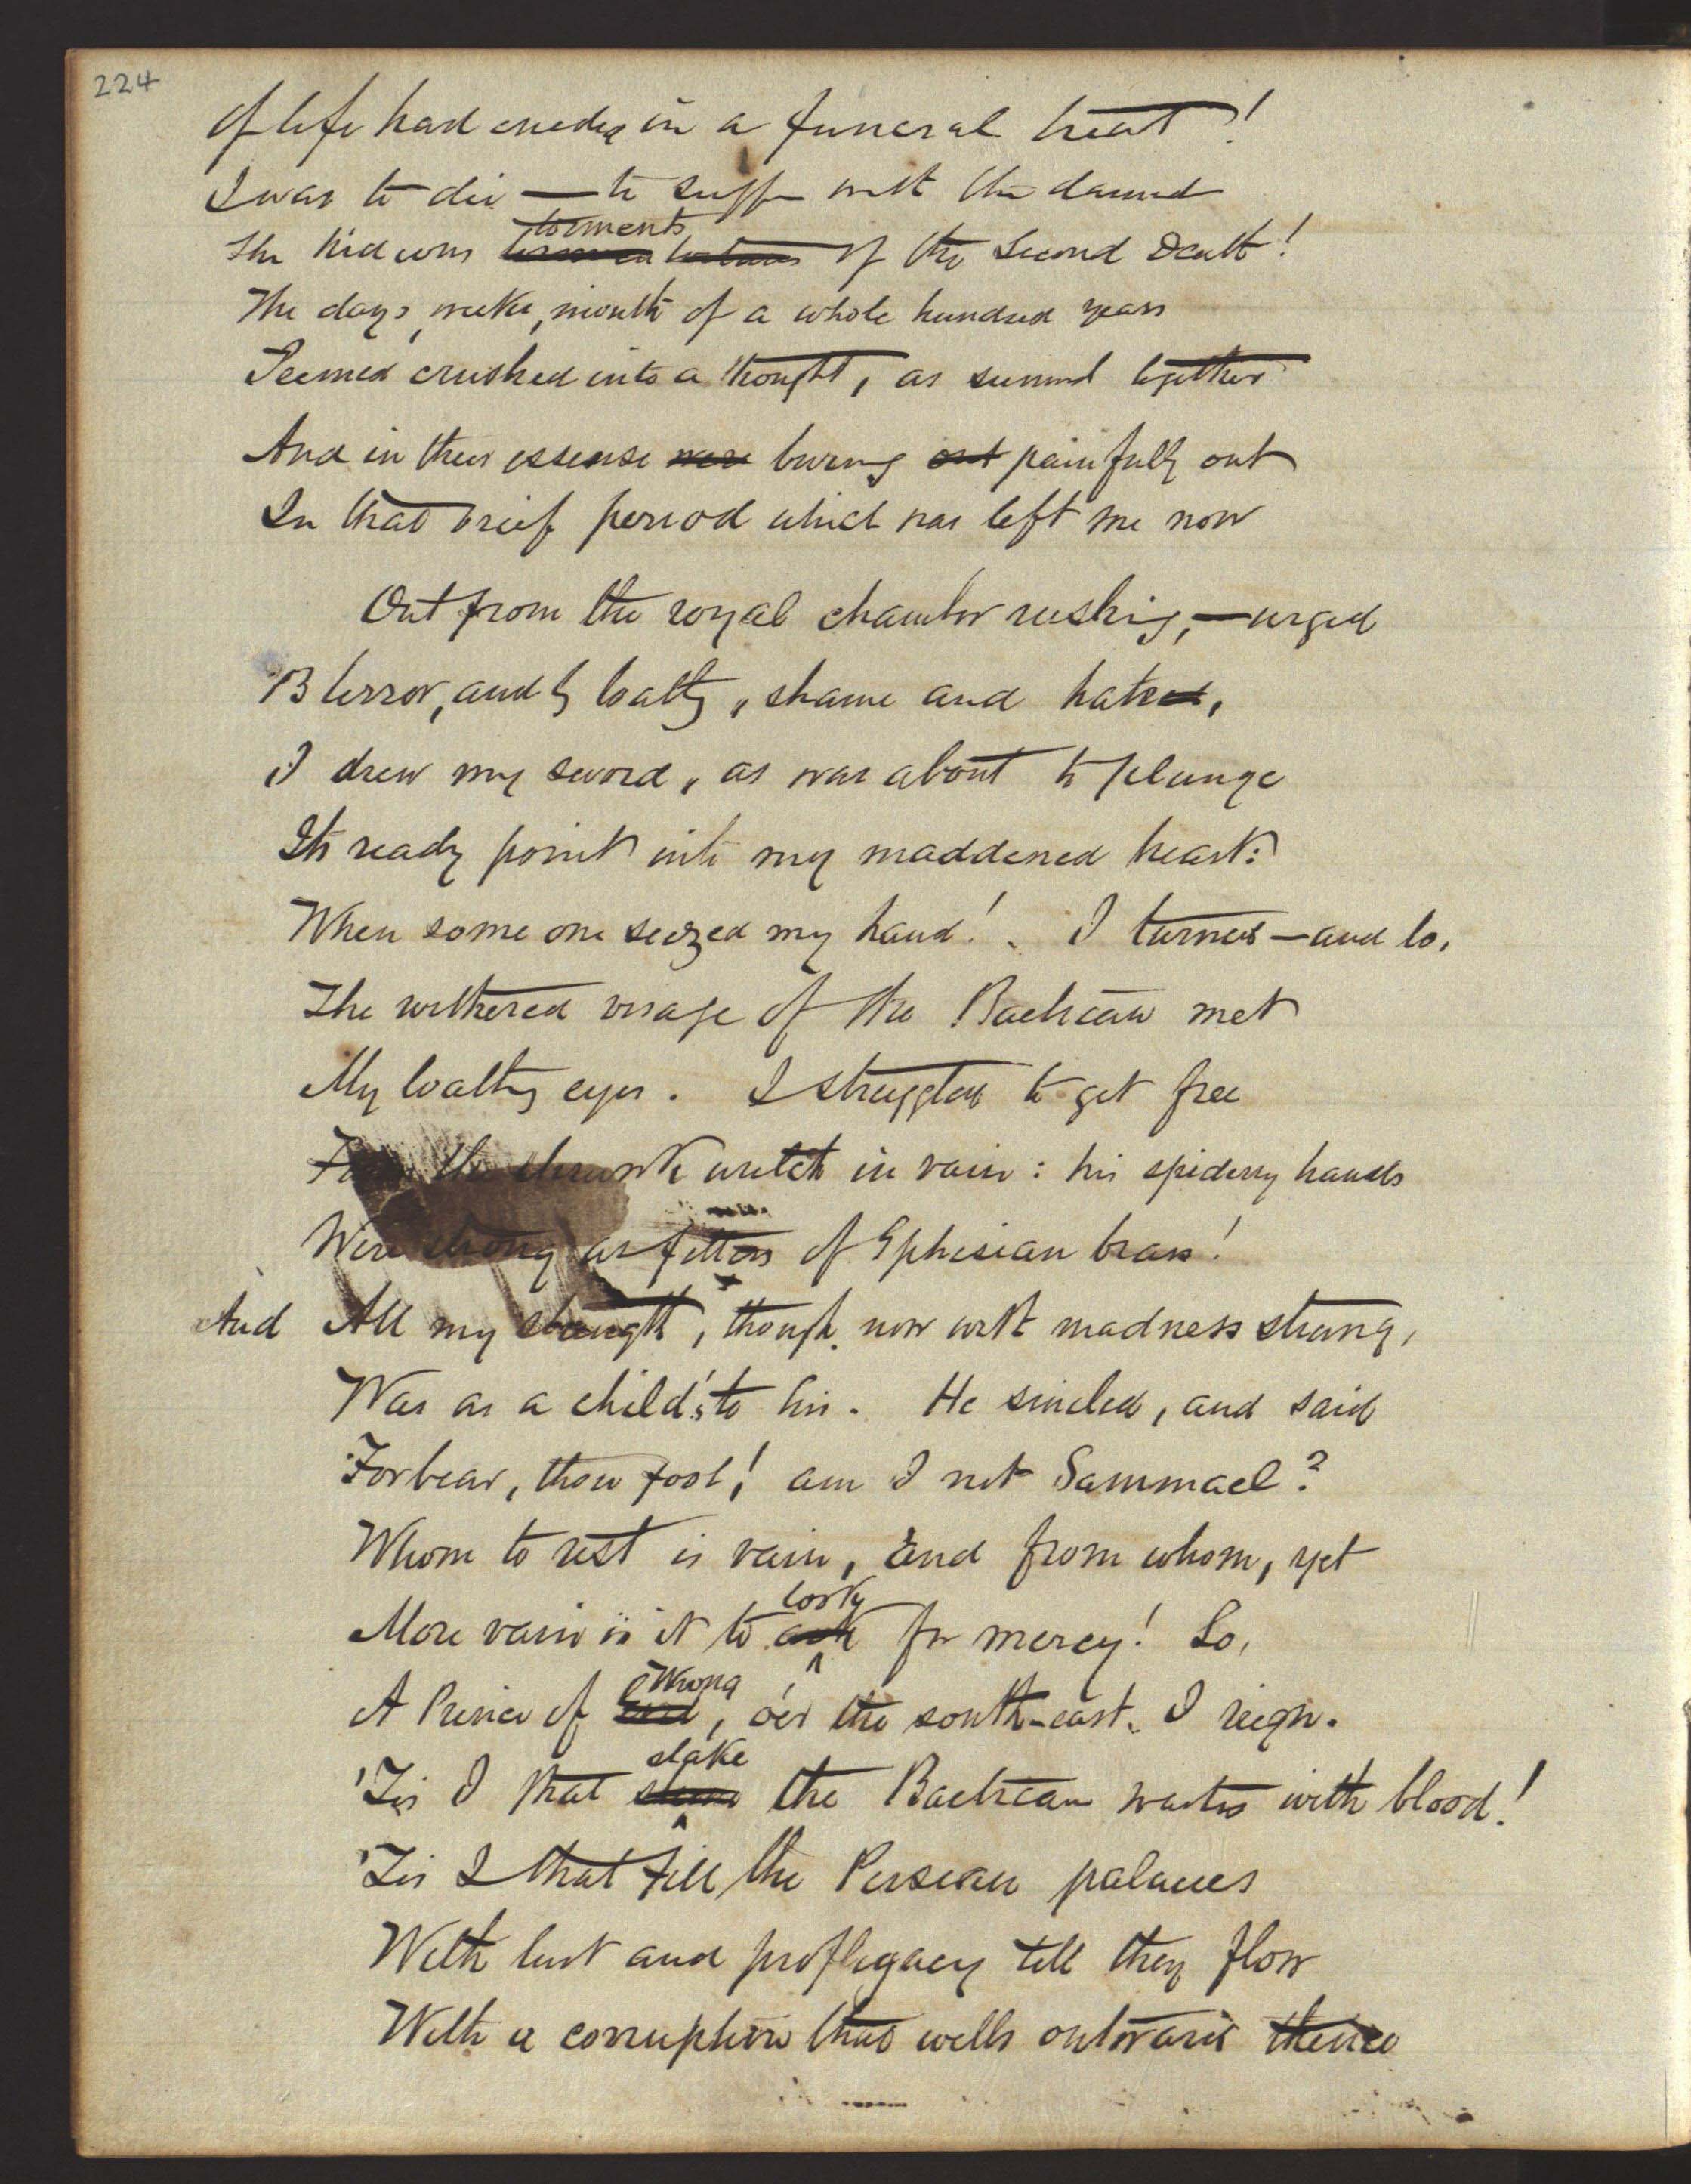 224
Of life had ended in a funeral treat!
I was to die — to suffer with the damned
The hideous torments of the Second Death!
The days, weeks, months of a whole hundred years
Seemed crushed into a thought, as summed together
And in their essense were burning out painfully out
In that brief period which was left me now
Out from the royal chamber rushing, — urged
By terror, and by loathing, shame and hatred,
I drew my sword, as was about to plunge
Its ready point into my maddened heart:
When some one seized my hand! I turned — and lo,
The withered visage of the Bactrian met
My loathing eyes. I struggled to get free
From the shrunk wretch in vain: his spidery hands
Were strong as fetters of Ephesian brass!
And All my strength, though now with madness strung,
Was as a child's to his. He smiled, and said
Forbear, thou fool! am I not Sammael?
Whom to resist is vain, and from whom, yet
More vain is it to ask look for mercy! Lo,
A Prince of Evil Wrong, o'er the south-east I reign.
'Tis I that slake the Bactrian wastes with blood!
'Tis I that fill the Persian palaces
With lust and profligacy till they flow
With a corruption that wells outward thence